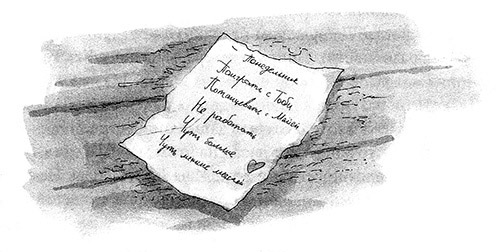 Понедельник
Поиграть с Тоби
Потанцевать с Майси
Не работать
Чуть больше
Чуть меньше мыслей